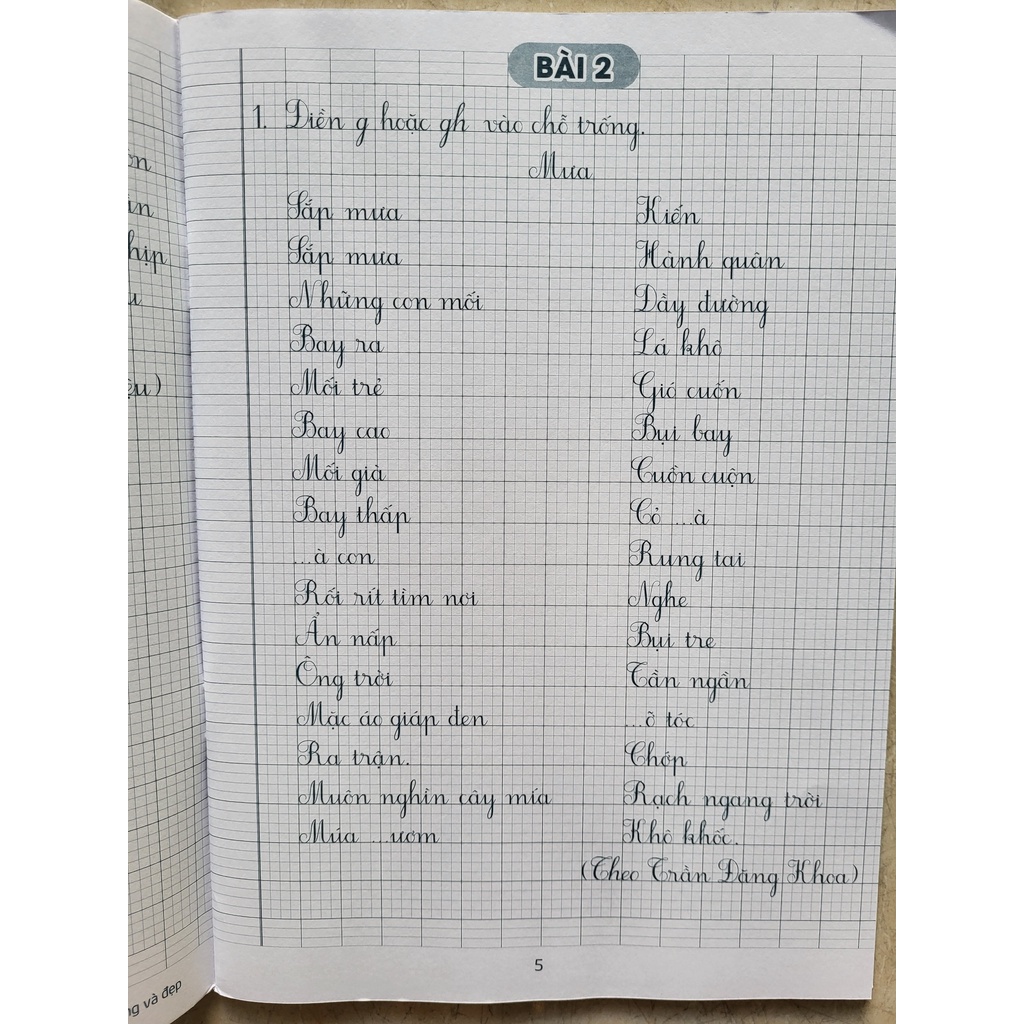 BÀI 2
1. Điền g hoặc gh vào chỗ trống.
Mưa
Sắp mưa
Sắp mưa
Những con mối
Bay ra
Mối trẻ
Bay cao
Mối già
Bay thấp
...à con
Rối rít tìm nơi
Ẩn nấp
Ông trời
Mặc áo giáp đen
Ra trận.
Muôn nghìn cây mía
Múa ...ươm
Kiến
Hành quân
Đầy đường
Lá khô
Gió cuốn
Bụi bay
Cuồn cuộn
Cỏ ...à
Rung tai
Nghe
Bụi tre
Tần ngần
...ỡ tóc
Chớp
Rạch ngang trời
Khô khốc.
(Theo Trần Đăng Khoa)
5
hịp
ệu)
ng và đẹp